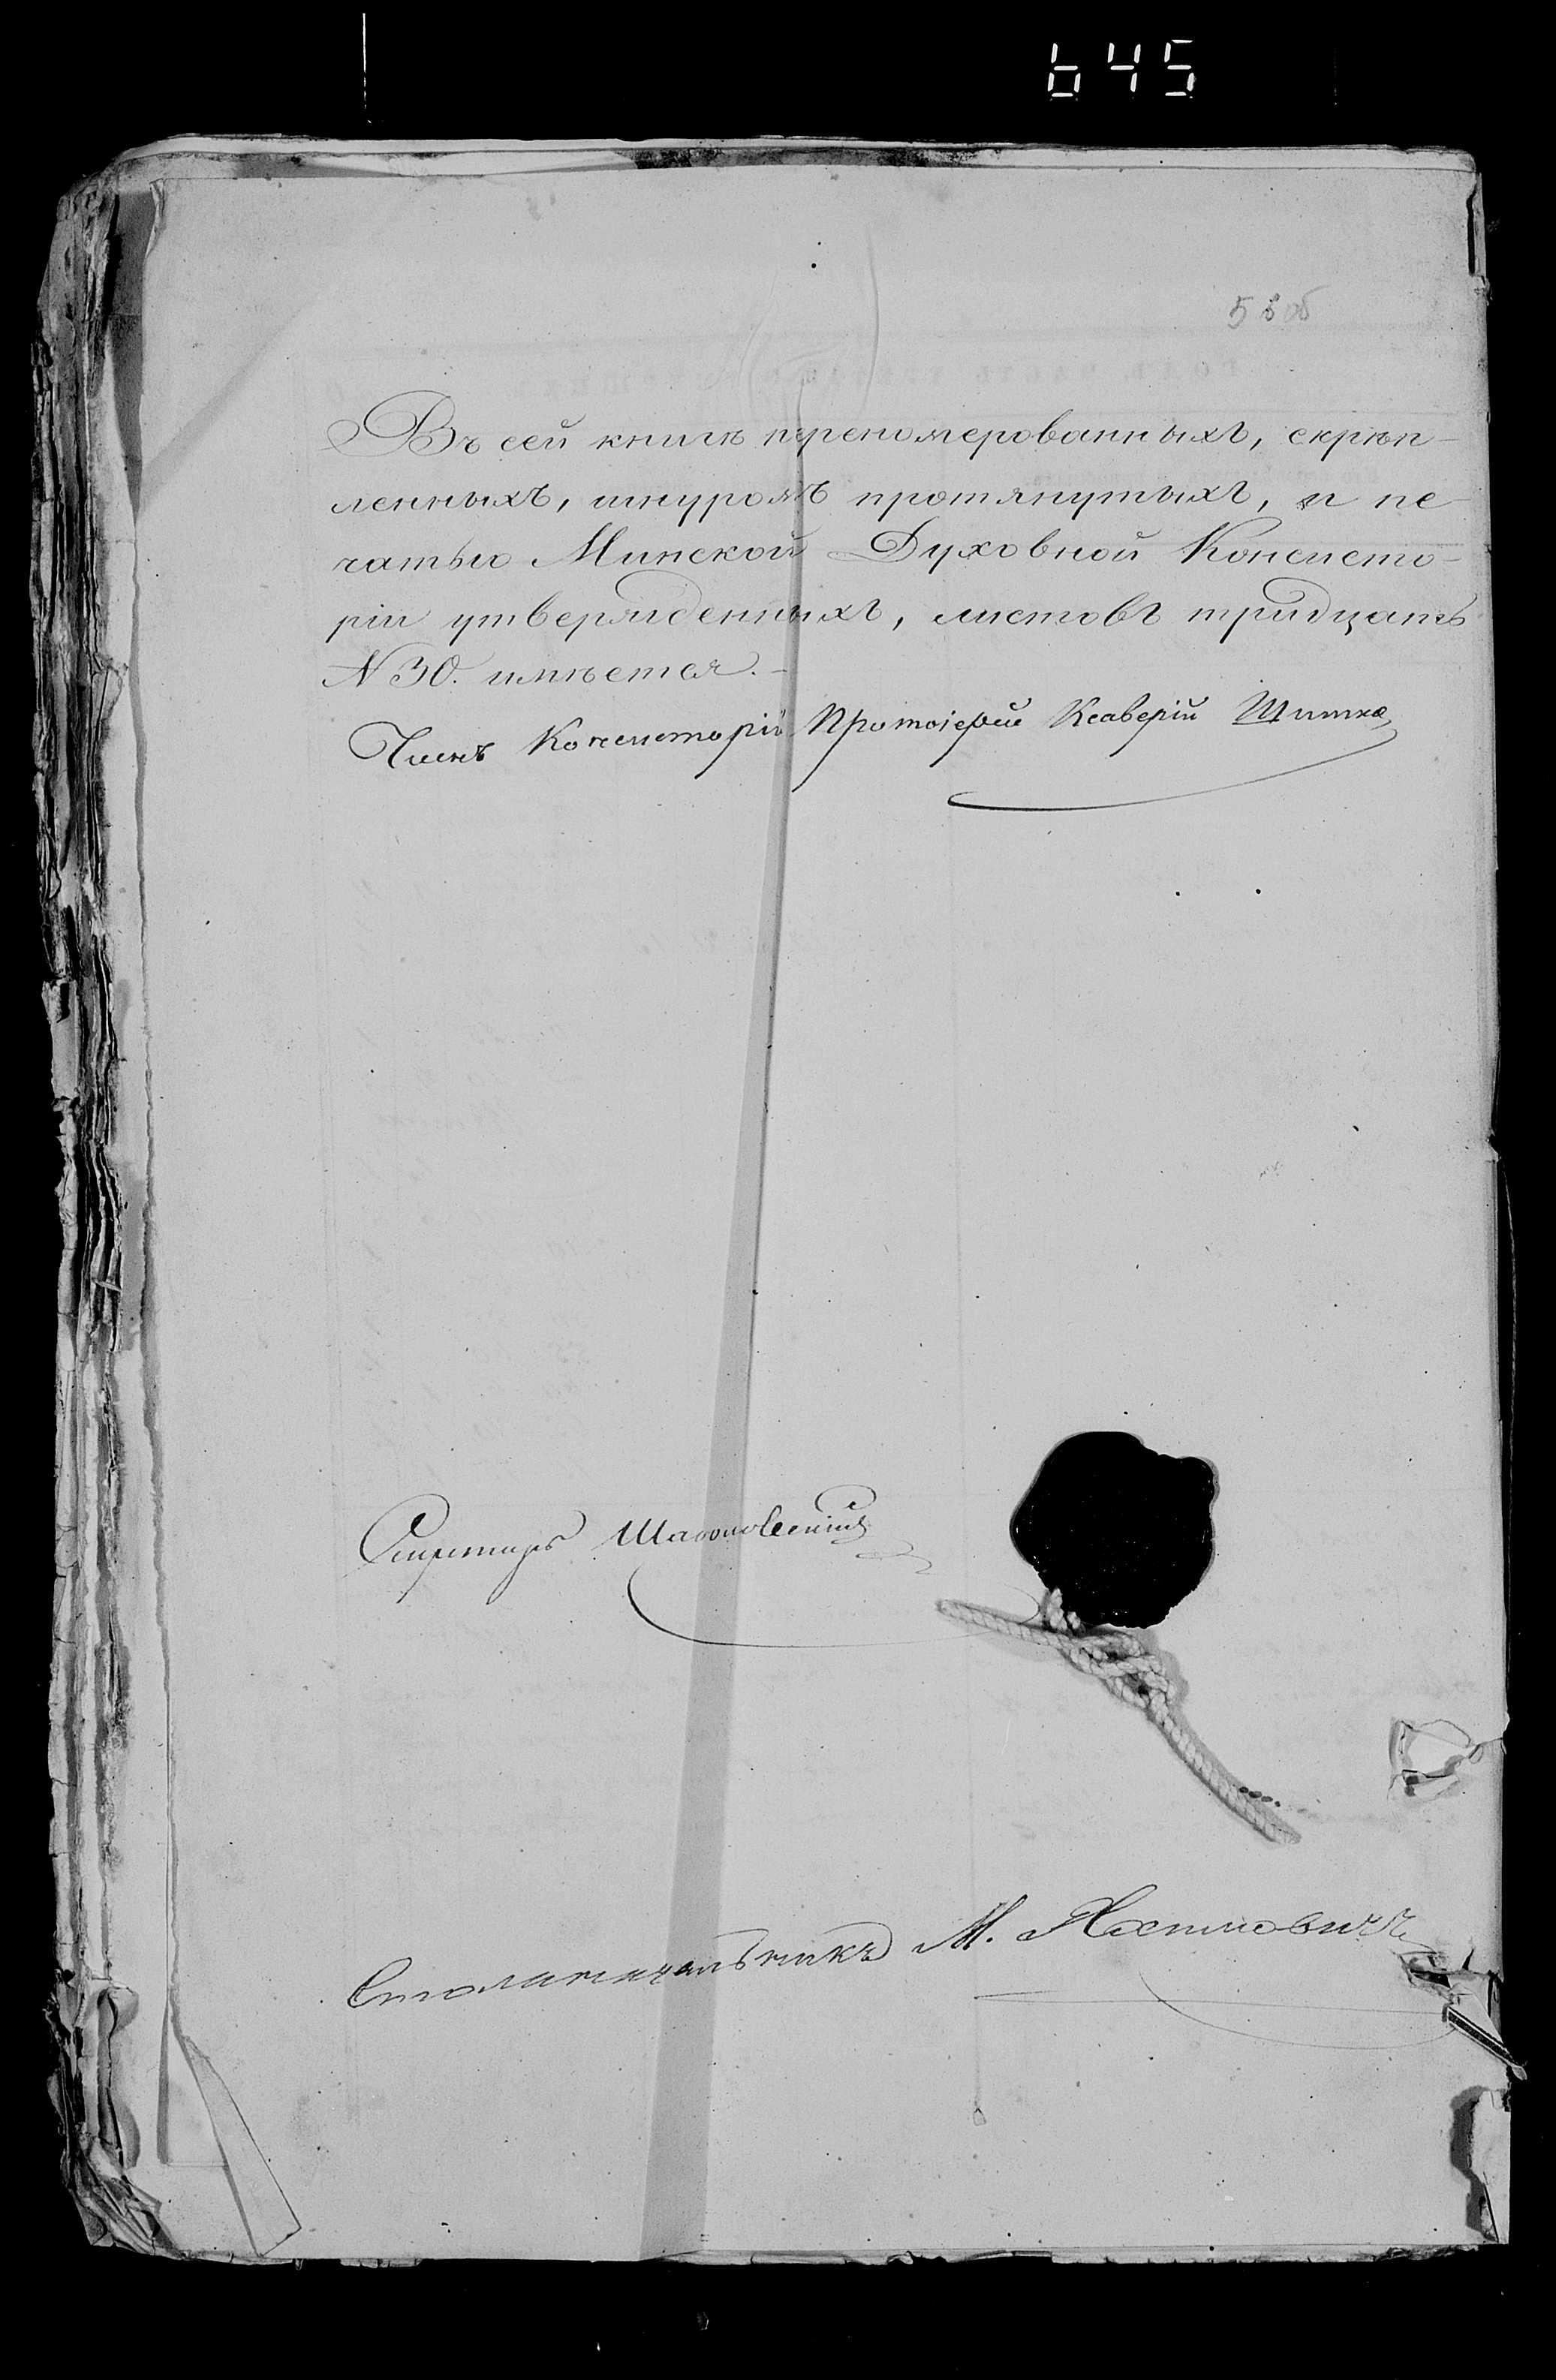 645
Въ сей книгѣ переномерованныхъ, скрѣп-
ленныхъ, шнуромъ протянутыхъ, и пе-
чатью Минской Духовной Консисто-
ріи утвержденныхъ, листовъ тридцать
N 30. имѣется.-
Членъ Консисторіи Протоіерей Ксаверій
Секретарь
Столоначальникъ М.